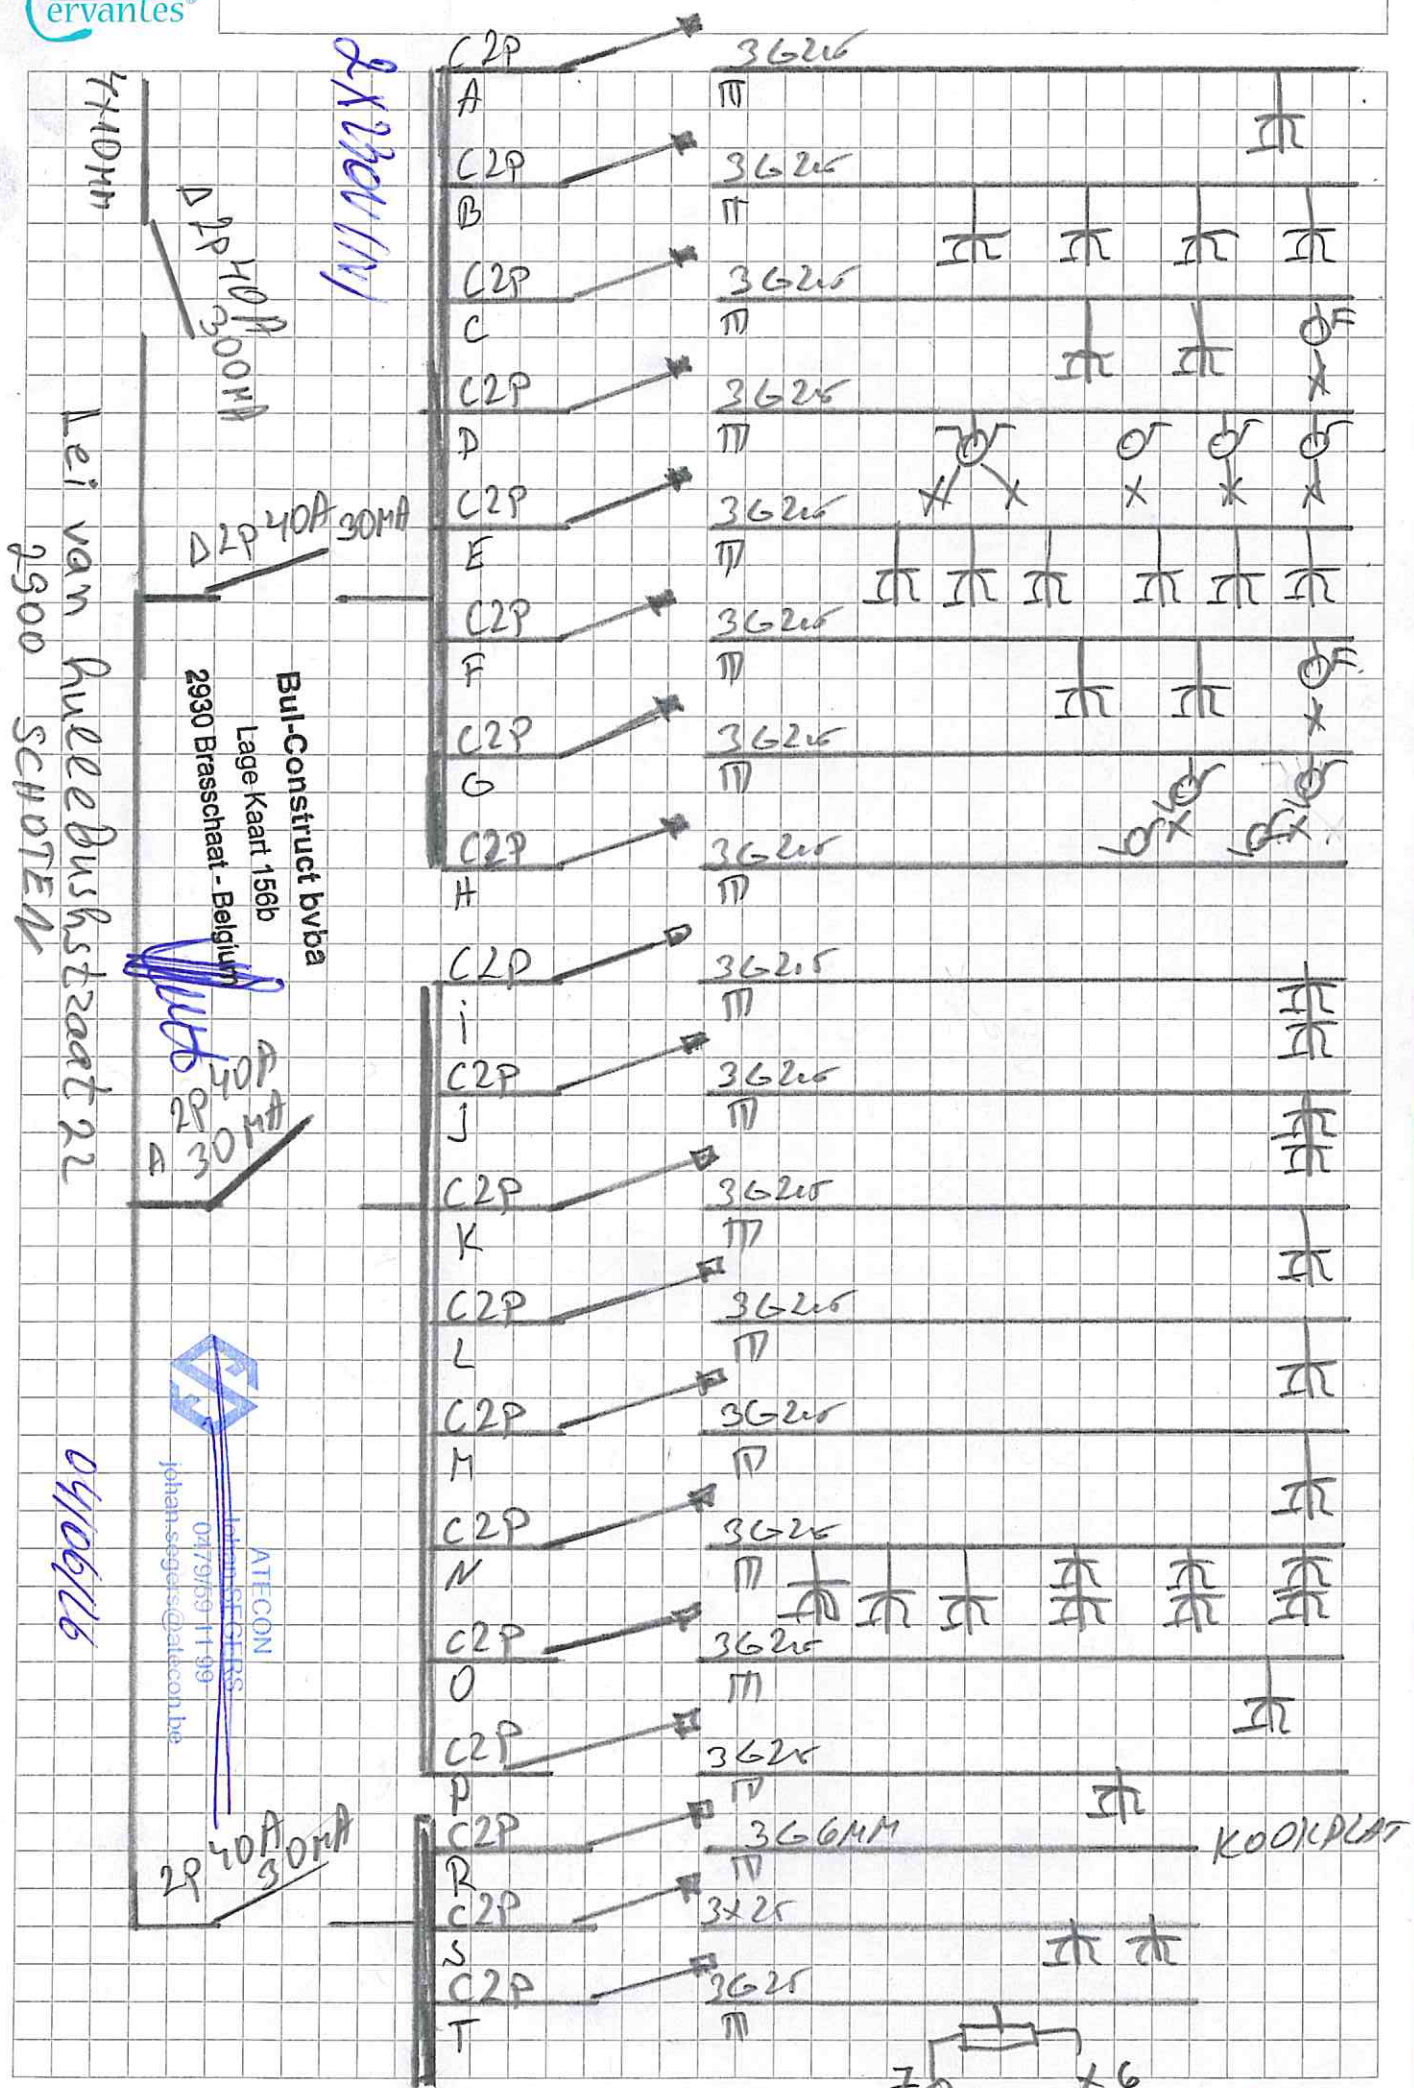 ervantes®
4x10mm
Δ 2P 40A
300mA
2x230V/N/
Δ 2P 40A 30mA
Lei van hulleBushstraat 22
2900 SCHOTEN
Bul-Construct bvba
Lage Kaart 156b
2930 Brasschaat - Belgium
40A
2P
Δ 30mA
ATECON
Johan SEGERS
0479/69 11 99
johan.segers@atecon.be
04/06/16
2P 40A
30mA
C2P 3G2.5
A
C2P 3G2.5
B
C2P 3G2.5
C
C2P 3G2.5
D
C2P 3G2.5
E
C2P 3G2.5
F
C2P 3G2.5
G
C2P 3G2.5
H
C2P 3G2.5
i
C2P 3G2.5
J
C2P 3G2.5
K
C2P 3G2.5
L
C2P 3G2.5
M
C2P 3G2.5
N
C2P 3G2.5
O
C2P 3G2.5
P
C2P 3G6MM KOOKPLAT
R
C2P 3x2.5
S
C2P 3G2.5
T
x6